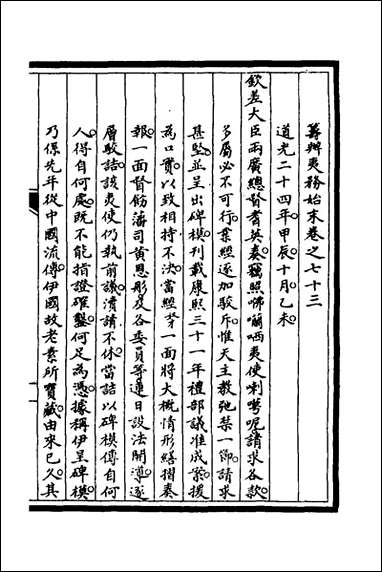 籌辦夷務始末卷之七十三
道光二十四年甲辰十月乙未
欽差大臣兩廣總督耆英奏。竊照咈囒哂夷使喇㘁呢請求各款。
多屬必不可行。業經逐加駁斥。惟天主教弛禁一節。請求
甚堅。並呈出碑模。刊載康熙三十一年禮部議准成案。援
為口實。以致相持不決。當經一面將大概情形繕摺奏
報。一面督飭藩司黃恩彤及各委員等連日設法開導。逐
層駮詰。該夷使仍執前議。瀆請不休。當詰以碑模傳自何
人。得自何處。既不能指證確鑿。何足為憑。據稱伊呈碑模。
乃係先年從中國流傳伊國。故老素所寶藏。由來已久。其